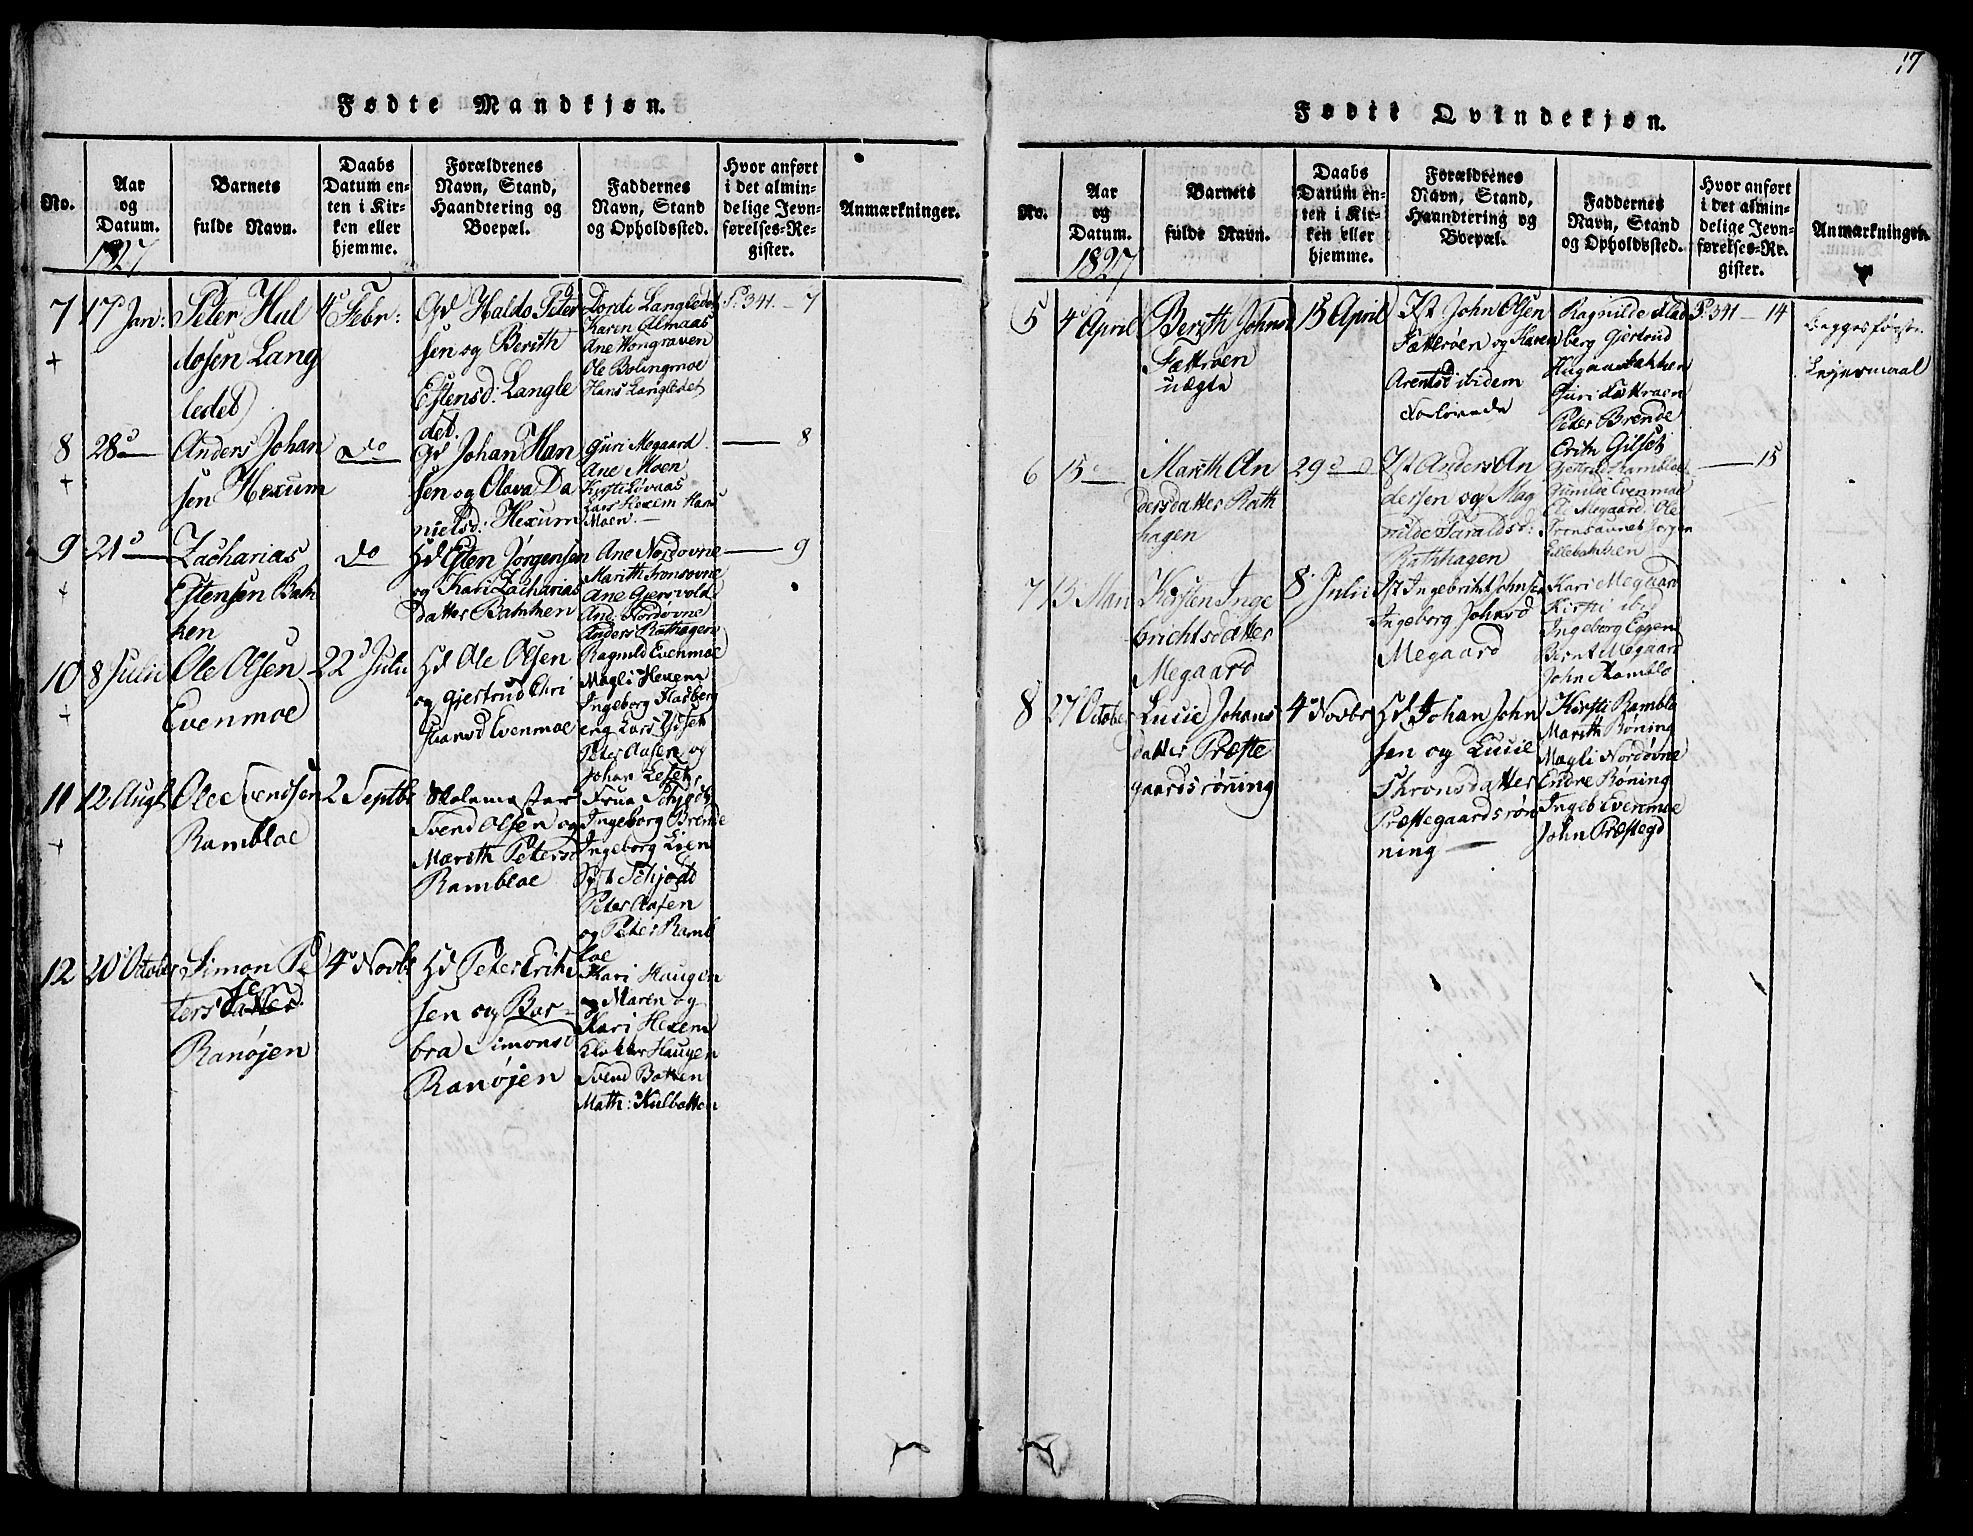 17
Fødte Mandkjøn.
No.
Aar
og
Datum.
1827
Barnets
fulde Navn.
Daabs
Datum en-
ten i Kir-
ken eller
hjemme.
Forældrenes
Navn, Stand,
Haandtering og
Boepæl.
Faddernes
Navn, Stand
og Opholdssted.
Hvor anført
i det almin-
delige Jevn-
førelses-Re-
gister.
Anmærkninger.
7
17d Jan:
Peter Hal
dosen Lang
ledet
4d Febr:
Gd Haldo Peter
sen og Berith
Estensd: Langle
det.
Dorde Langledet
Karen Almaas
Ane Wongraven
Ole Bolingmoe
Hans Langledet
P. 341 - 7
8
28d
Anders Johan
sen Hexum
do
Gd Johan Han
sen og Olava Da
nielsd: Hexum
Guri Megaard
Ane Moen
Lars Hexem Hans
Moen.
8
9
21d
Zacharias
Estensen Bak
ken
do
Hd Esten Jørgensen
og Kari Zacharias
datter Bakken
Ane Nordovne
Marith Tronsovne
Ane Gjersvold
And. Nordøvne
Anders Rathagen
9
10
8 Julii
Ole Olsen
Evenmoe
22d Julii
Hd Ole Olsen
og Gjertrud Chri
stiansd Evenmoe
Ragnild Evenmoe
Magli Hexem
Ingeborg Flasberg
Peter Aasen og
Johan
11
12 Augt
Ole Svendsen
Rambloe
2 Septbr
Skolemester
Svend Olsen og
Marith Petersd
Rambloe
Frue Schjødt
Ingeborg Brende
Ingeborg Lien
Schjødt
Peter Aasen
og Peter Ramb
loe
12
20d Octobr
Simon Pe
ters datter sen
Ranøjen
4d Novbr
Hd Peter Erik
sen og Bar-
bra Simonsd
Ranøjen
Kari Haugen
og Maren og
Kari Hexem
Klokker Haugen
Svend Bakken
Math: Kulbakken
Fødte Qvindekjøn.
No.
Aar
og
Datum.
1827
Barnets
fulde Navn.
Daabs
Datum en-
ten i Kir-
ken eller
hjemme.
Forældrenes
Navn, Stand,
Haandtering og
Boepæl.
Faddernes
Navn, Stand
og Opholdssted.
Hvor anført
i det almin-
delige Jevn-
førelses-Re-
gister.
Anmærkninger.
5
4d April
Berith Johnsd
Sættrøen
uægte
15 April
Ist John Olsen
Sættrøen og Karen
Arentsd ibidem
Forlovede
Ragnilde Flad
berg Gjertrud
Guri Sættraen
Peter Brende
Erik Gilset
P. 341 - 14
begges første
Lejermaal
6
15d
Marith An
dersdatter Rath
hagen
29d
Ist Anders An
dersen og Mag
nilde Taraldsd:
Rathhagen
Gjertrud Rambloe
Gunilde Evenmoe
Ole Megaard. Ole
Tronsaunet Jørgen
Lillebakken
15
7
13 Mai
Kirsten Inge
brichtsdatter
Megaard
8 Julii
Ist Ingebricht Johnsen
Ingeborg Johnsd
Megaard
Kari Megaard
Kirsti ibid
Ingeborg Eggen
Bernt Megaard
John Ramblo
8
27 October
Lucie Johans
datter Præste
gaardsrøning
4d Novbr
Hd Johan John
sen og Lucie
Thronsdatter
Præstegaardsrøn
ning
Kirsti Ramblo
Marith Røning
Magli Nordøvne
Endre Røning
Ingeb Evenmoe
John Præstegd